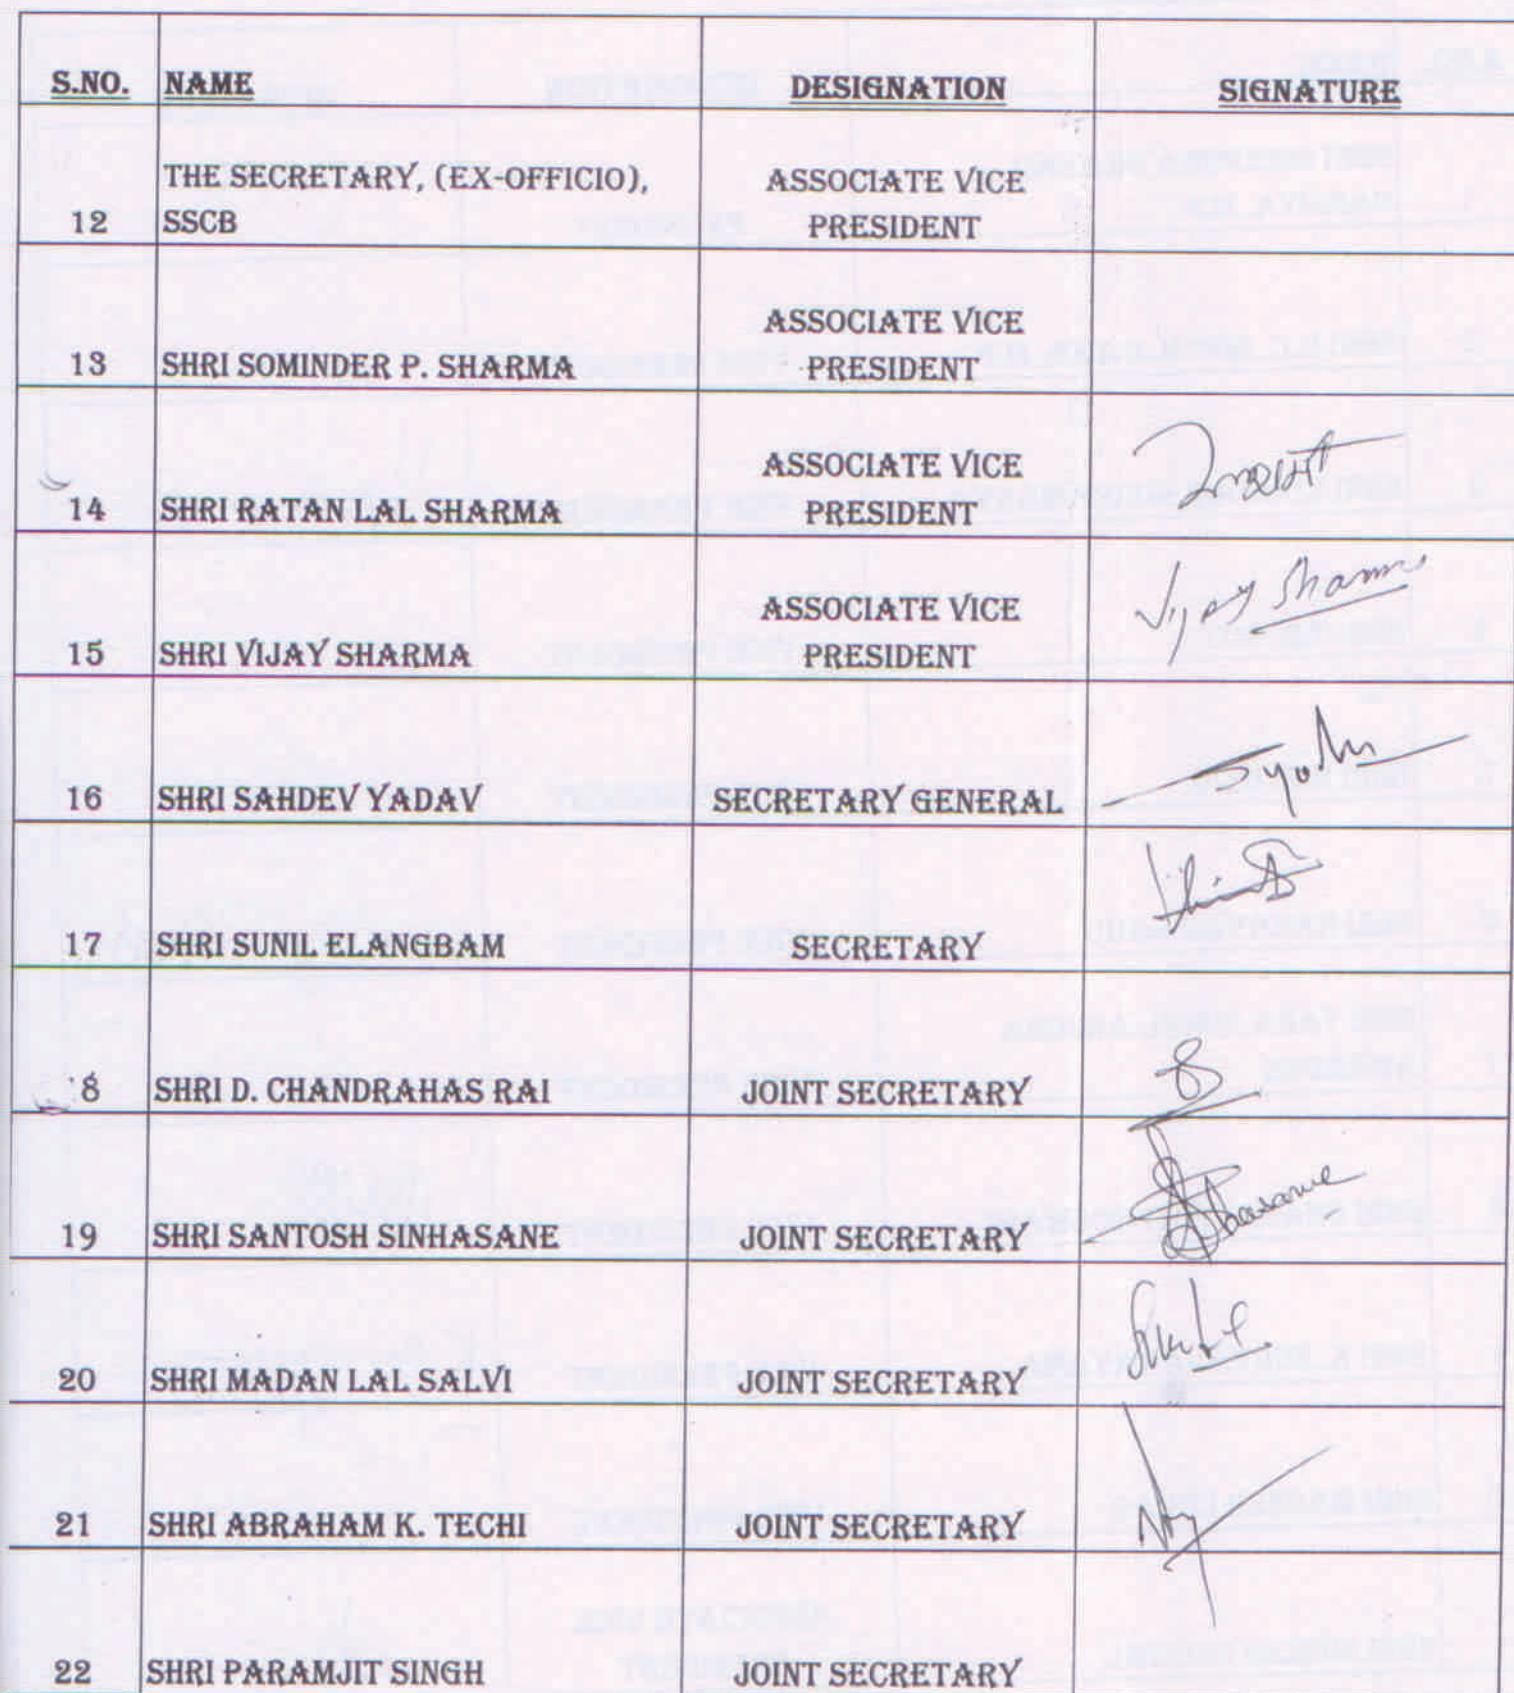 S.NO. NAME DESIGNATION SIGNATURE
THE SECRETARY, (EX-OFFICIO), ASSOCIATE VICE
12 SSCB PRESIDENT
ASSOCIATE VICE
13 SHRI SOMINDER P. SHARMA PRESIDENT
ASSOCIATE VICE
14 SHRI RATAN LAL SHARMA PRESIDENT
ASSOCIATE VICE Vijay Sharma
15 SHRI VIJAY SHARMA PRESIDENT
16 SHRI SAHDEV YADAV SECRETARY GENERAL
17 SHRI SUNIL ELANGBAM SECRETARY
8 SHRI D. CHANDRAHAS RAI JOINT SECRETARY
19 SHRI SANTOSH SINHASANE JOINT SECRETARY
20 SHRI MADAN LAL SALVI JOINT SECRETARY
21 SHRI ABRAHAM K. TECHI JOINT SECRETARY
22 SHRI PARAMJIT SINGH JOINT SECRETARY